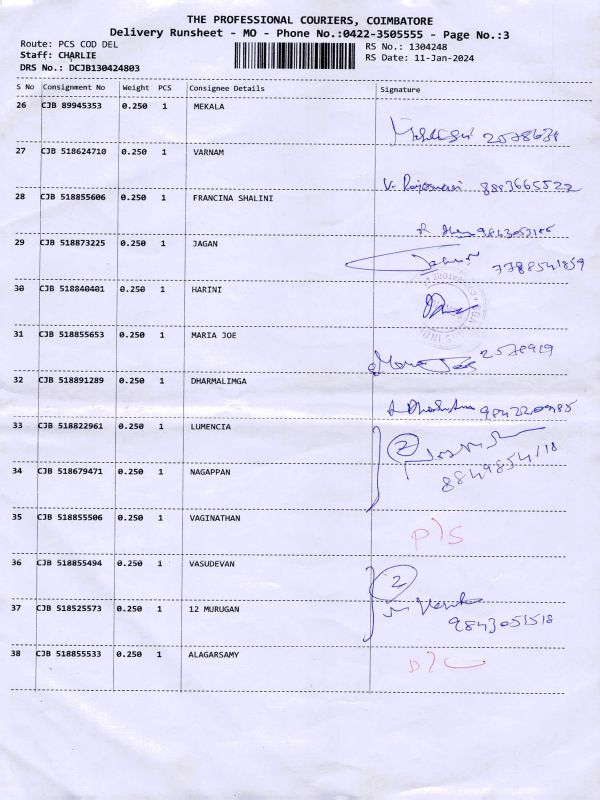 THE PROFESSIONAL COURIERS, COIMBATORE
Delivery Runsheet - MO - Phone No.:0422-3505555 - Page No.:3
Route: PCS COD DEL RS No.: 1304248
Staff: CHARLIE RS Date: 11-Jan-2024
DRS No.: DCJB130424803
S No Consignment No Weight PCS Consignee Details Signature
26 CJB 89945353 0.250 1 MEKALA
2578634
27 CJB 518624710 0.250 1 VARNAM
8883665522
28 CJB 518855606 0.250 1 FRANCINA SHALINI
29 CJB 518873225 0.250 1 JAGAN
7788541859
30 CJB 518840401 0.250 1 HARINI
31 CJB 518855653 0.250 1 MARIA JOE
32 CJB 518891289 0.250 1 DHARMALIMGA
33 CJB 518822961 0.250 1 LUMENCIA
2
34 CJB 518679471 0.250 1 NAGAPPAN
35 CJB 518855506 0.250 1 VAGINATHAN
P)S
36 CJB 518855494 0.250 1 VASUDEVAN
2
37 CJB 518525573 0.250 1 12 MURUGAN
9843051518
38 CJB 518855533 0.250 1 ALAGARSAMY